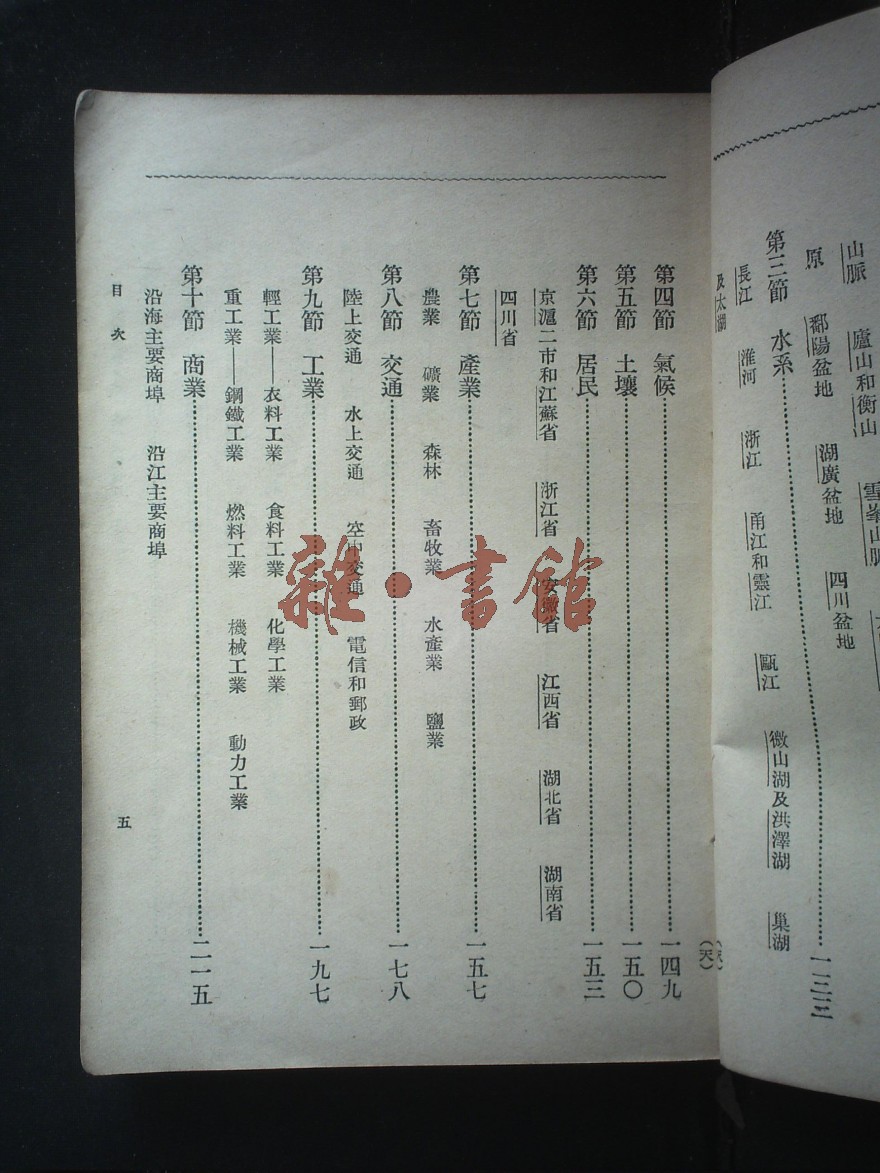 山脈　廬山和衡山
原　鄱陽盆地　湖廣盆地　四川盆地
第三節　水系………一三三
長江　淮河　浙江　甬江和靈江　甌江　微山湖及洪澤湖　巢湖
及太湖
第四節　氣候………一四九
第五節　土壤………一五〇
第六節　居民………一五三
京滬二市和江蘇省　浙江省　安徽省　江西省　湖北省　湖南省
四川省
第七節　產業………一五七
農業　礦業　森林　畜牧業　水產業　鹽業
第八節　交通………一七八
陸上交通　水上交通　空中交通　電信和郵政
第九節　工業………一九七
輕工業——衣料工業　食料工業　化學工業
重工業——鋼鐵工業　燃料工業　機械工業　動力工業
第十節　商業………二一五
沿海主要商埠　沿江主要商埠
目次　五
雜·書館